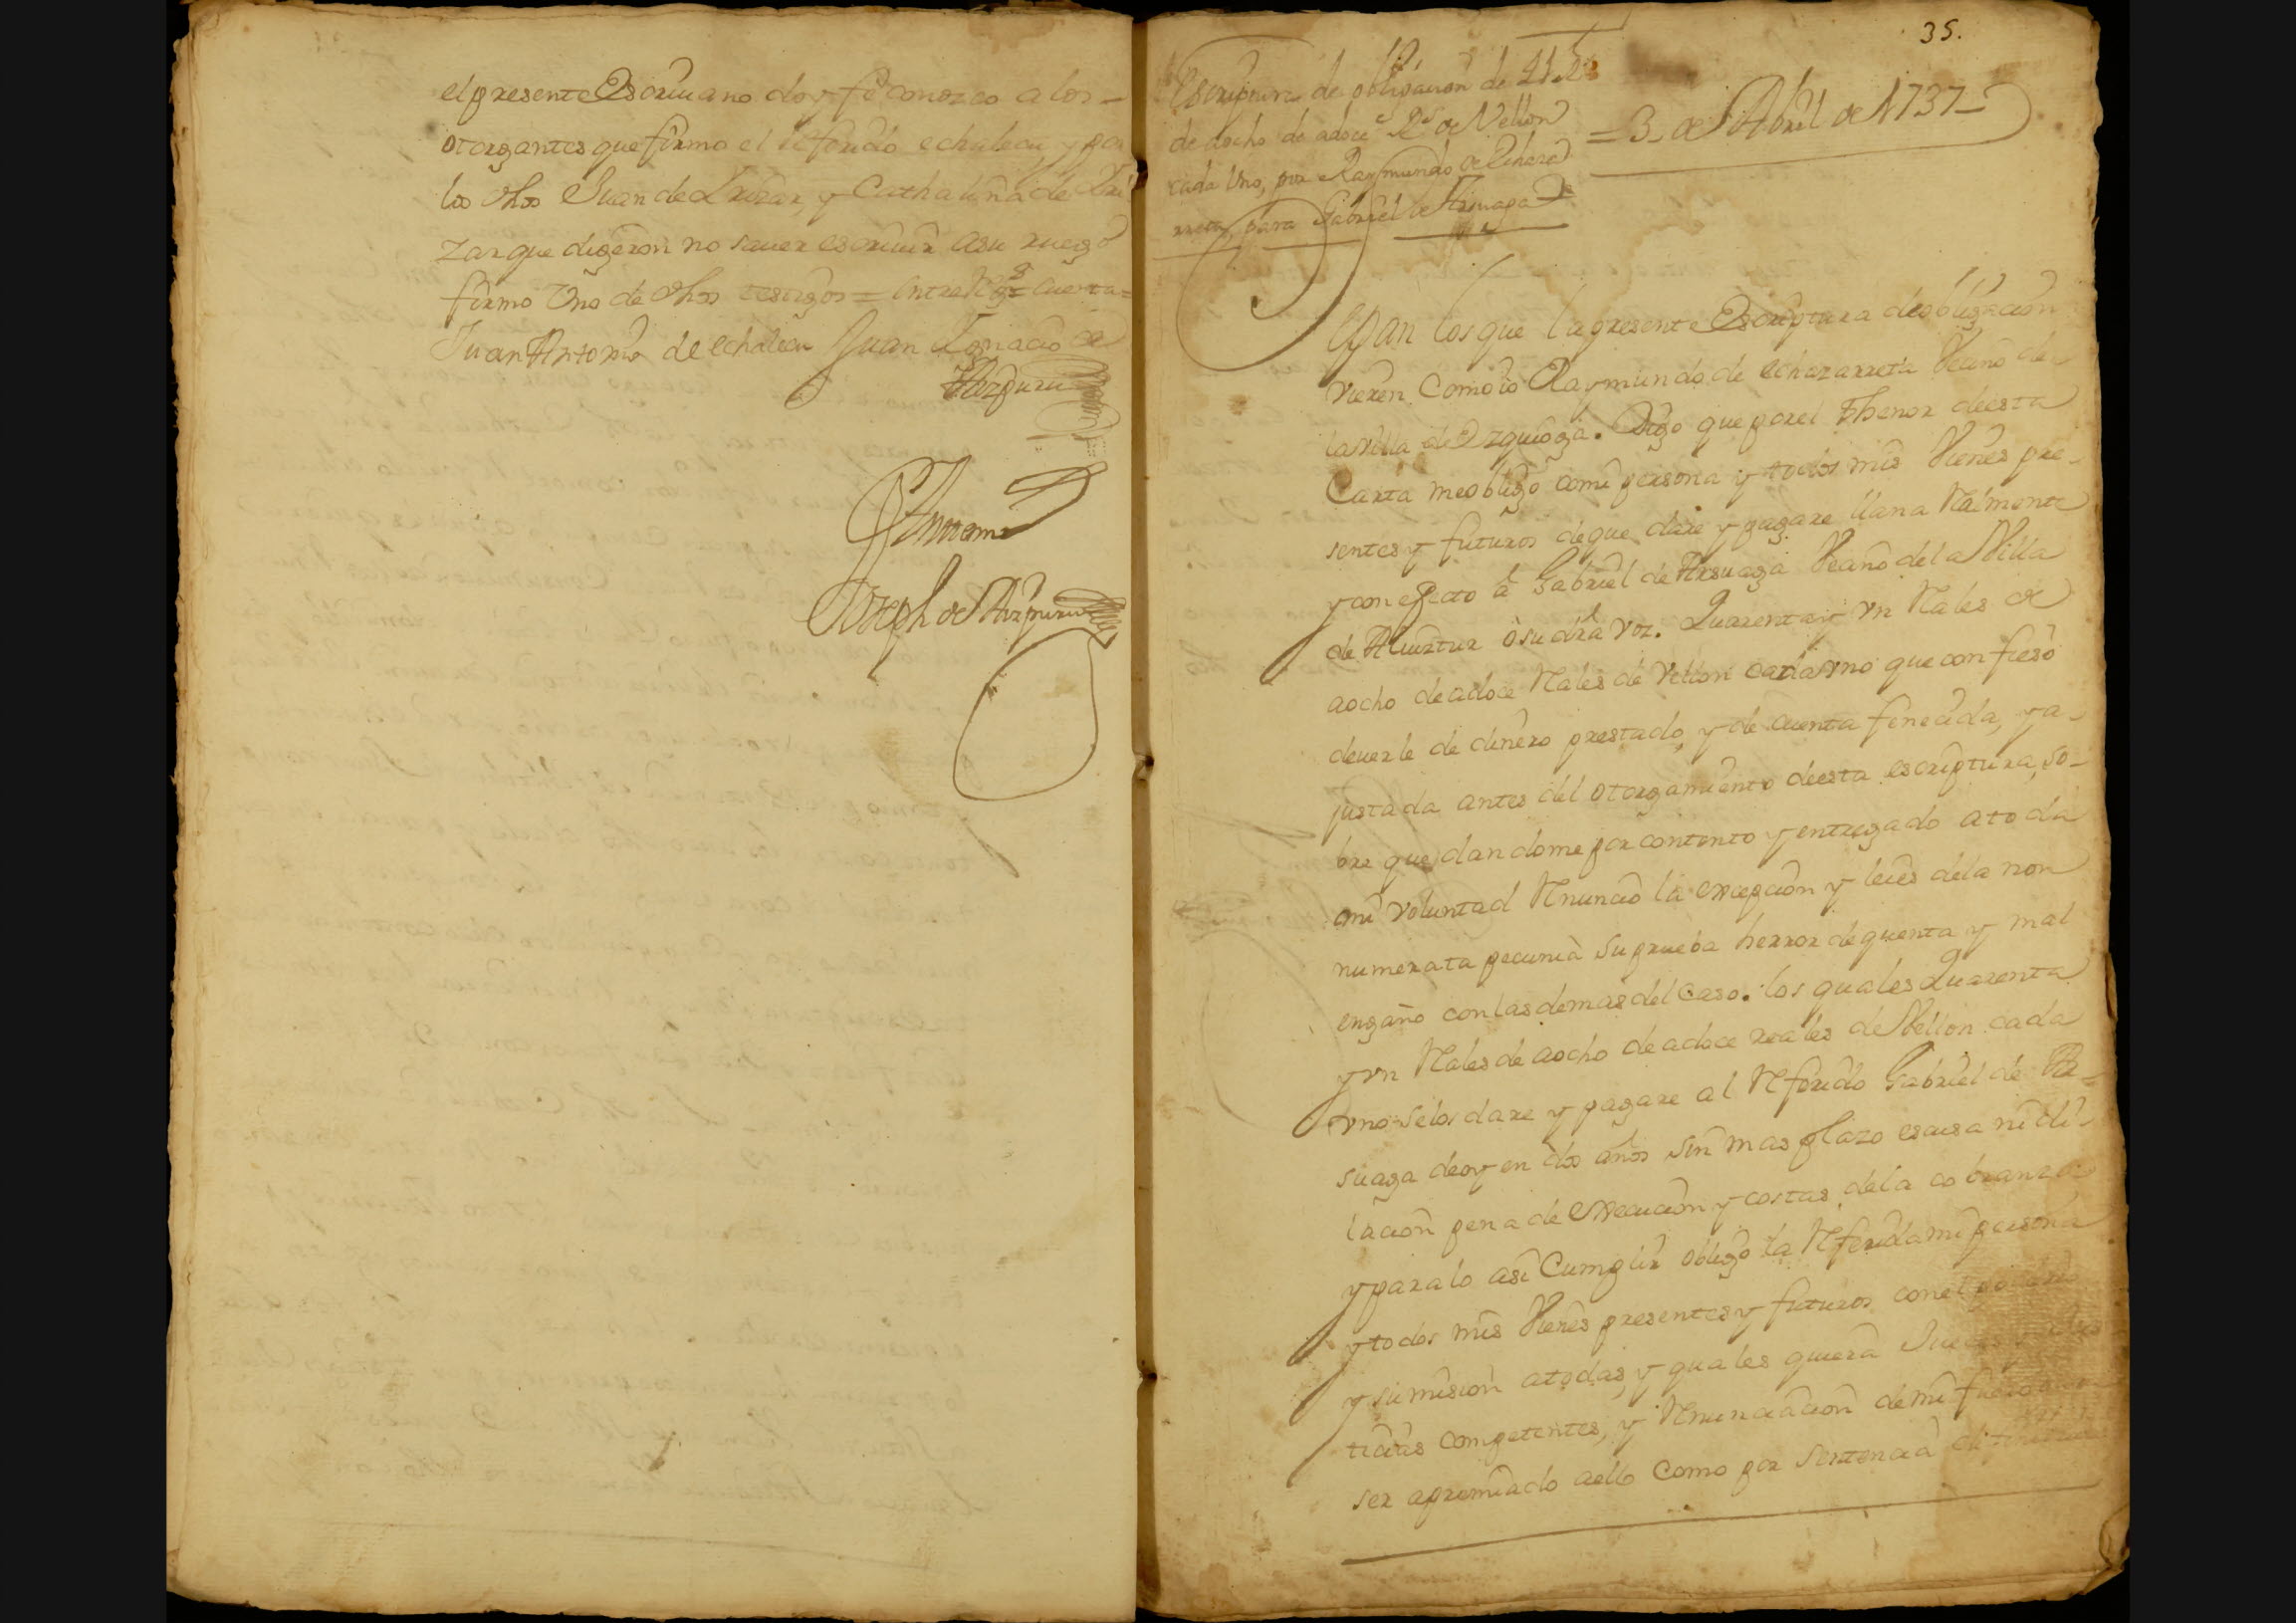 el presente Escriuano doy fe conozco a los =
otorgantes que firmo el referido echalecu, y por
los dhos Juan de Irizar, y Cathalina de Iri
zar que digeron no sauer escriuir asu ruego
firmo Vno de dhos testigos = entre Rs = Cuenta =
Juan Antonio de echalecu Juan Ignacio de
Aizpuru
Antemi
Joseph de Aizpuru
35.
Escriptura de obligacion de 41 Rs
de aocho de adoce Rs de Vellon
cada Vno, por Raymundo de Echaza
rreta, para Gabriel de Arsuaga
= 3 de Abril de 1737 =
Sepan los que la presente Escriptura de obligacion
vieren Como io Raymundo de echazarreta Vecino de
la villa de Ezquioga. Digo que por el Thenor de esta
Carta me obligo comi persona y todos mis Vienes pre-
sentes y futuros de que dare y pagare llana Realmente
y con efecto â Gabriel de Arsuaga Vecino de la Villa
de ò su dra voz. Quarenta y vn Rales de
aocho de adoce Rales de Vellon cada vno que confieso
deuerle de dinero prestado, y de cuenta fenecida, y a-
justada antes del otorgamiento de esta escriptura, so-
bre que dandome por contento y entregado atoda
mi voluntad Renuncio la excepcion y leies dela non
numerata pecunia su prueba herror de quenta y mal
engaño con las demas del Caso. los quales Quarenta
y vn Rales de aocho de adoce reales de Vellon cada
vno se los dare y pagare al Referido Gabriel de Ar-
suaga de oy en dos años sin mas plazo escusa ni di-
lacion pena de execucion y costas dela cobranza
y para lo asi Cumplir obligo la Referida mi persona
y todos mis Vienes presentes y futuros con el poderio
y sumision atodas, y quales quiera Jueces y Jus
ticias competentes, y Renunciacion de mi fuero
ser apremiado aello Como por sentencia difinitiua